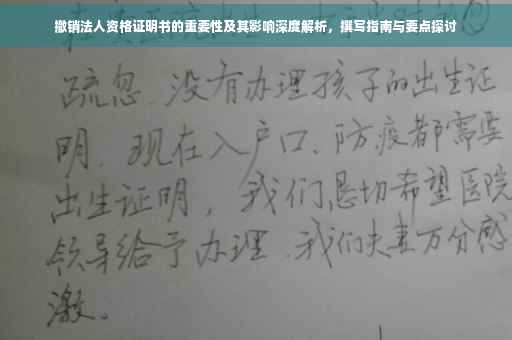 撤销法人资格证明书的重要性及其影响深度解析，撰写指南与要点探讨
疏忽、没有办理孩子的出生证
明、现在入户口、防疫都需要
出生证明，我们恳切希望医院
领导给予办理、我们夫妻万分感
激。